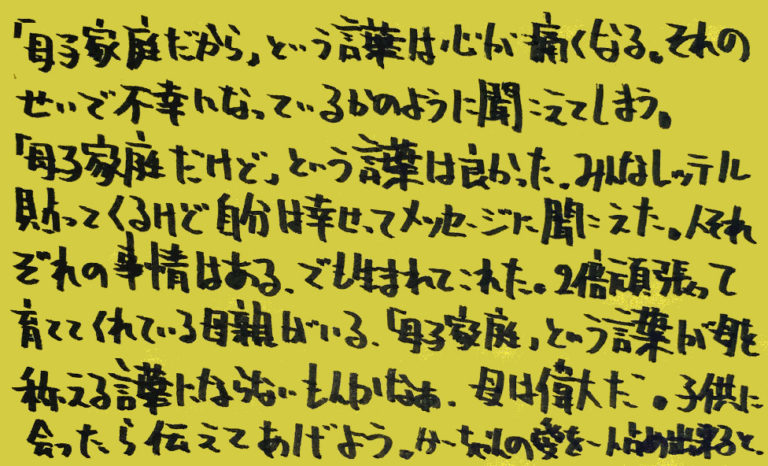 「母子家庭だから」という言葉は心が痛くなる。それの
せいで不幸になっているかのように聞こえてしまう。
「母子家庭だけど」という言葉は良かった。みんなレッテル
貼ってくるけど自分は幸せってメッセージに聞こえた。人それ
ぞれの事情はある、でも生まれてこれた。2倍頑張って
育ててくれている母親がいる、「母子家庭」という言葉が母を
称える言葉にならないもんかなぁ、母は偉大だ。子供に
会ったら伝えてあげよう。かーちゃんの愛を一人占め出来ると、